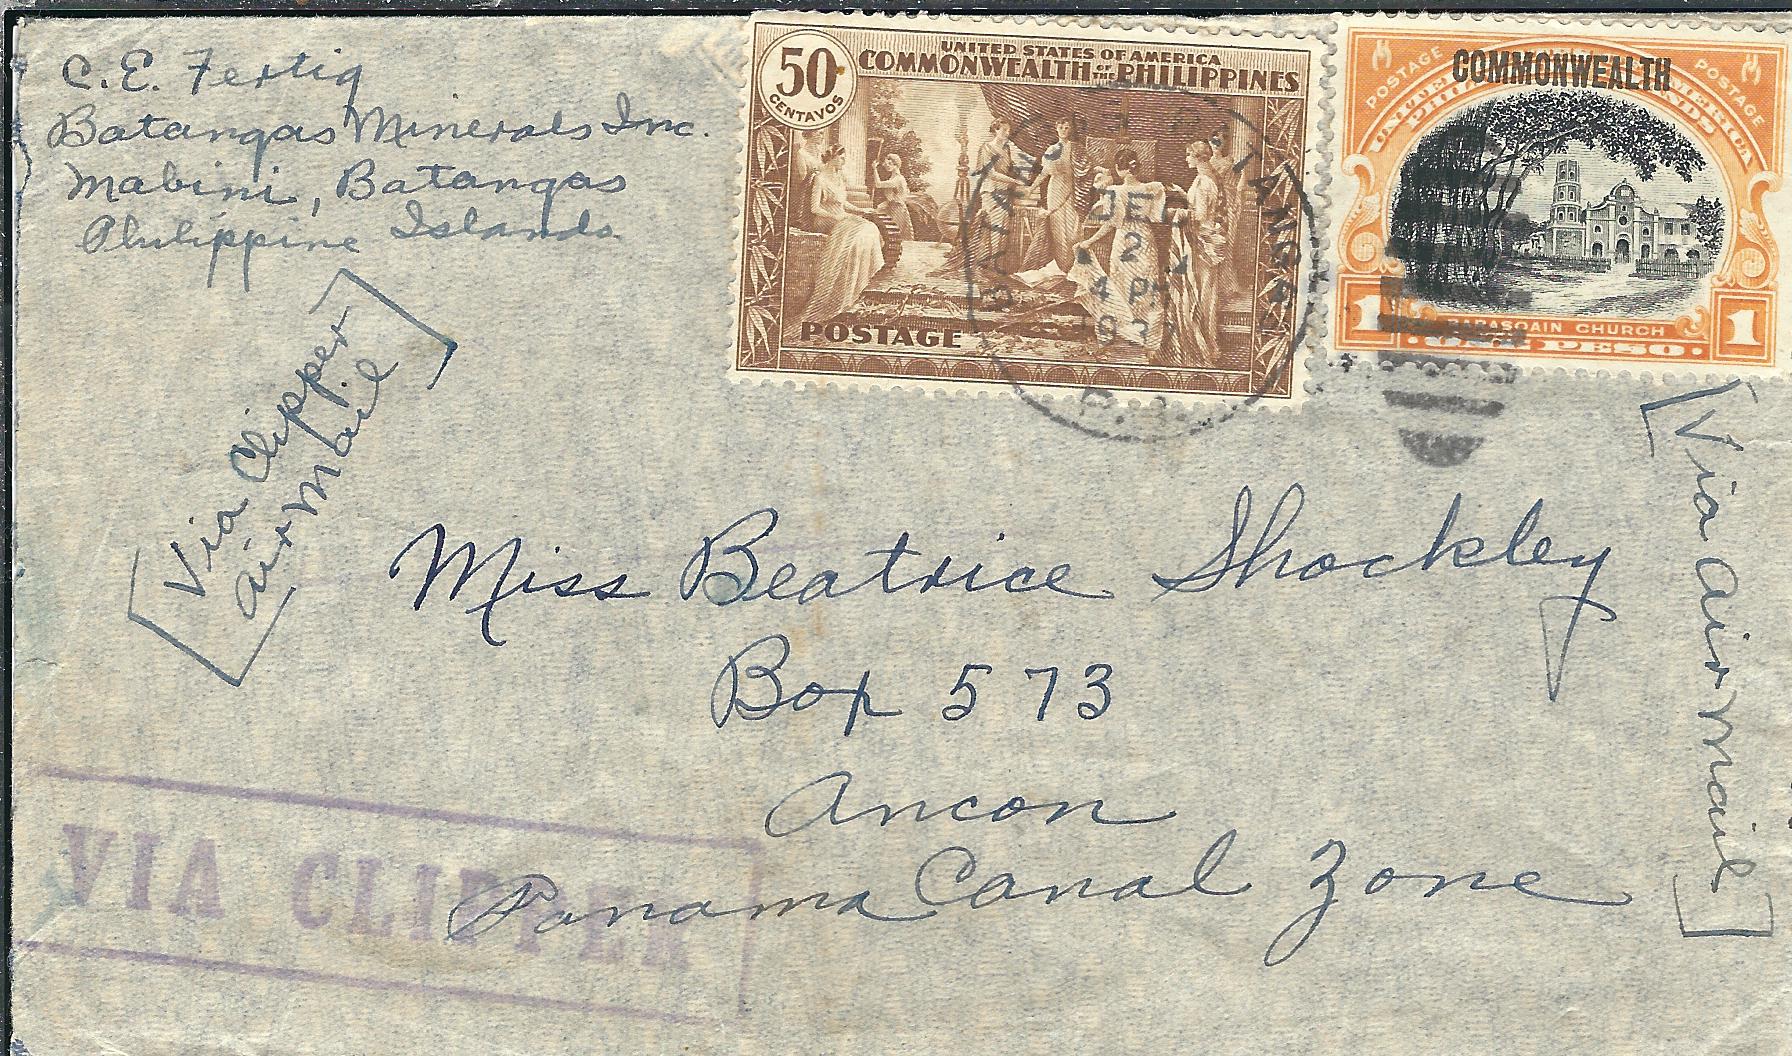 C. E. Fertig
Batangas Minerals Inc.
Mabini, Batangas
Philippine Islands
50
CENTAVOS
UNITED STATES OF AMERICA
COMMONWEALTH OF THE PHILIPPINES
POSTAGE
POSTAGE
COMMONWEALTH
POSTAGE
1
BARASOAIN CHURCH
ONE PESO
1
BATANGAS, BATANGAS
DEC
2
4 PM
P.I.
Via Clipper
air Mail
Via Air Mail
Miss Beatrice Shockley
Box 573
Ancon
Panama Canal Zone
VIA CLIPPER